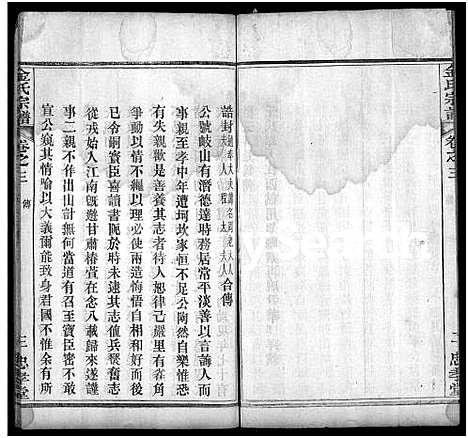 金氏宗譜
卷之三
傳
三
忠孝堂
誥封
合傳
公號岐山有潛德達時務居常平淡善以言誨人
事親至孝中年遭坷坎家恒不足公陶然自樂惟恐
有失親歡是善養其志者待人恕律己嚴里有雀角
爭勸以情不可則喻以理而兩造悔悟自相和好而後
已令嗣賓臣喜讀書阨於時未遂其志値兵燹奮志
從戎始入江南旣遊甘肅椿萱在念八載歸來遂謹
事二親不作出山計無何當道有召之賓臣密不可
宣公窺其情喻以大義爾能致身君國不惟余有光
金氏宗譜
卷之三
傳
三
忠孝堂